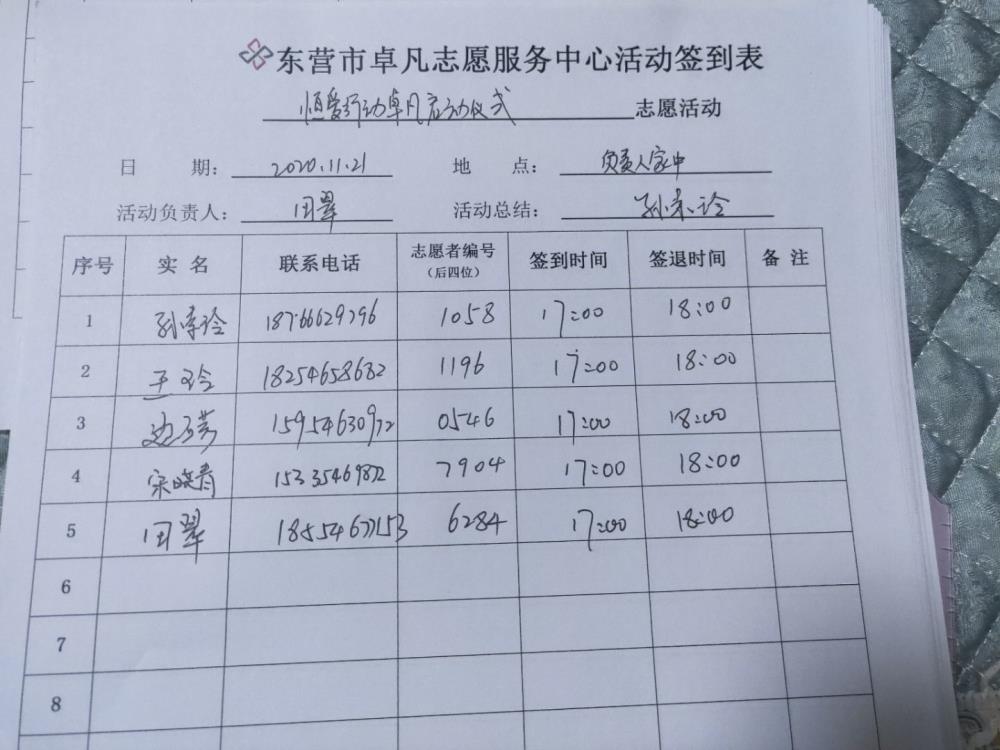 东营市卓凡志愿服务中心活动签到表
恒爱行动卓凡启动仪式 志愿活动
日 期: 2020.11.21 地 点: 负责人家中
活动负责人: 田翠 活动总结: 孙素玲
序号 实 名 联系电话 志愿者编号 (后四位) 签到时间 签退时间 备 注
1 孙素玲 18766629796 1058 17:00 18:00
2 王玲 18254658682 1196 17:00 18:00
3 15954630972 0546 17:00 18:00
4 宋晓青 15335469872 7904 17:00 18:00
5 田翠 18554677153 6284 17:00 18:00
6
7
8